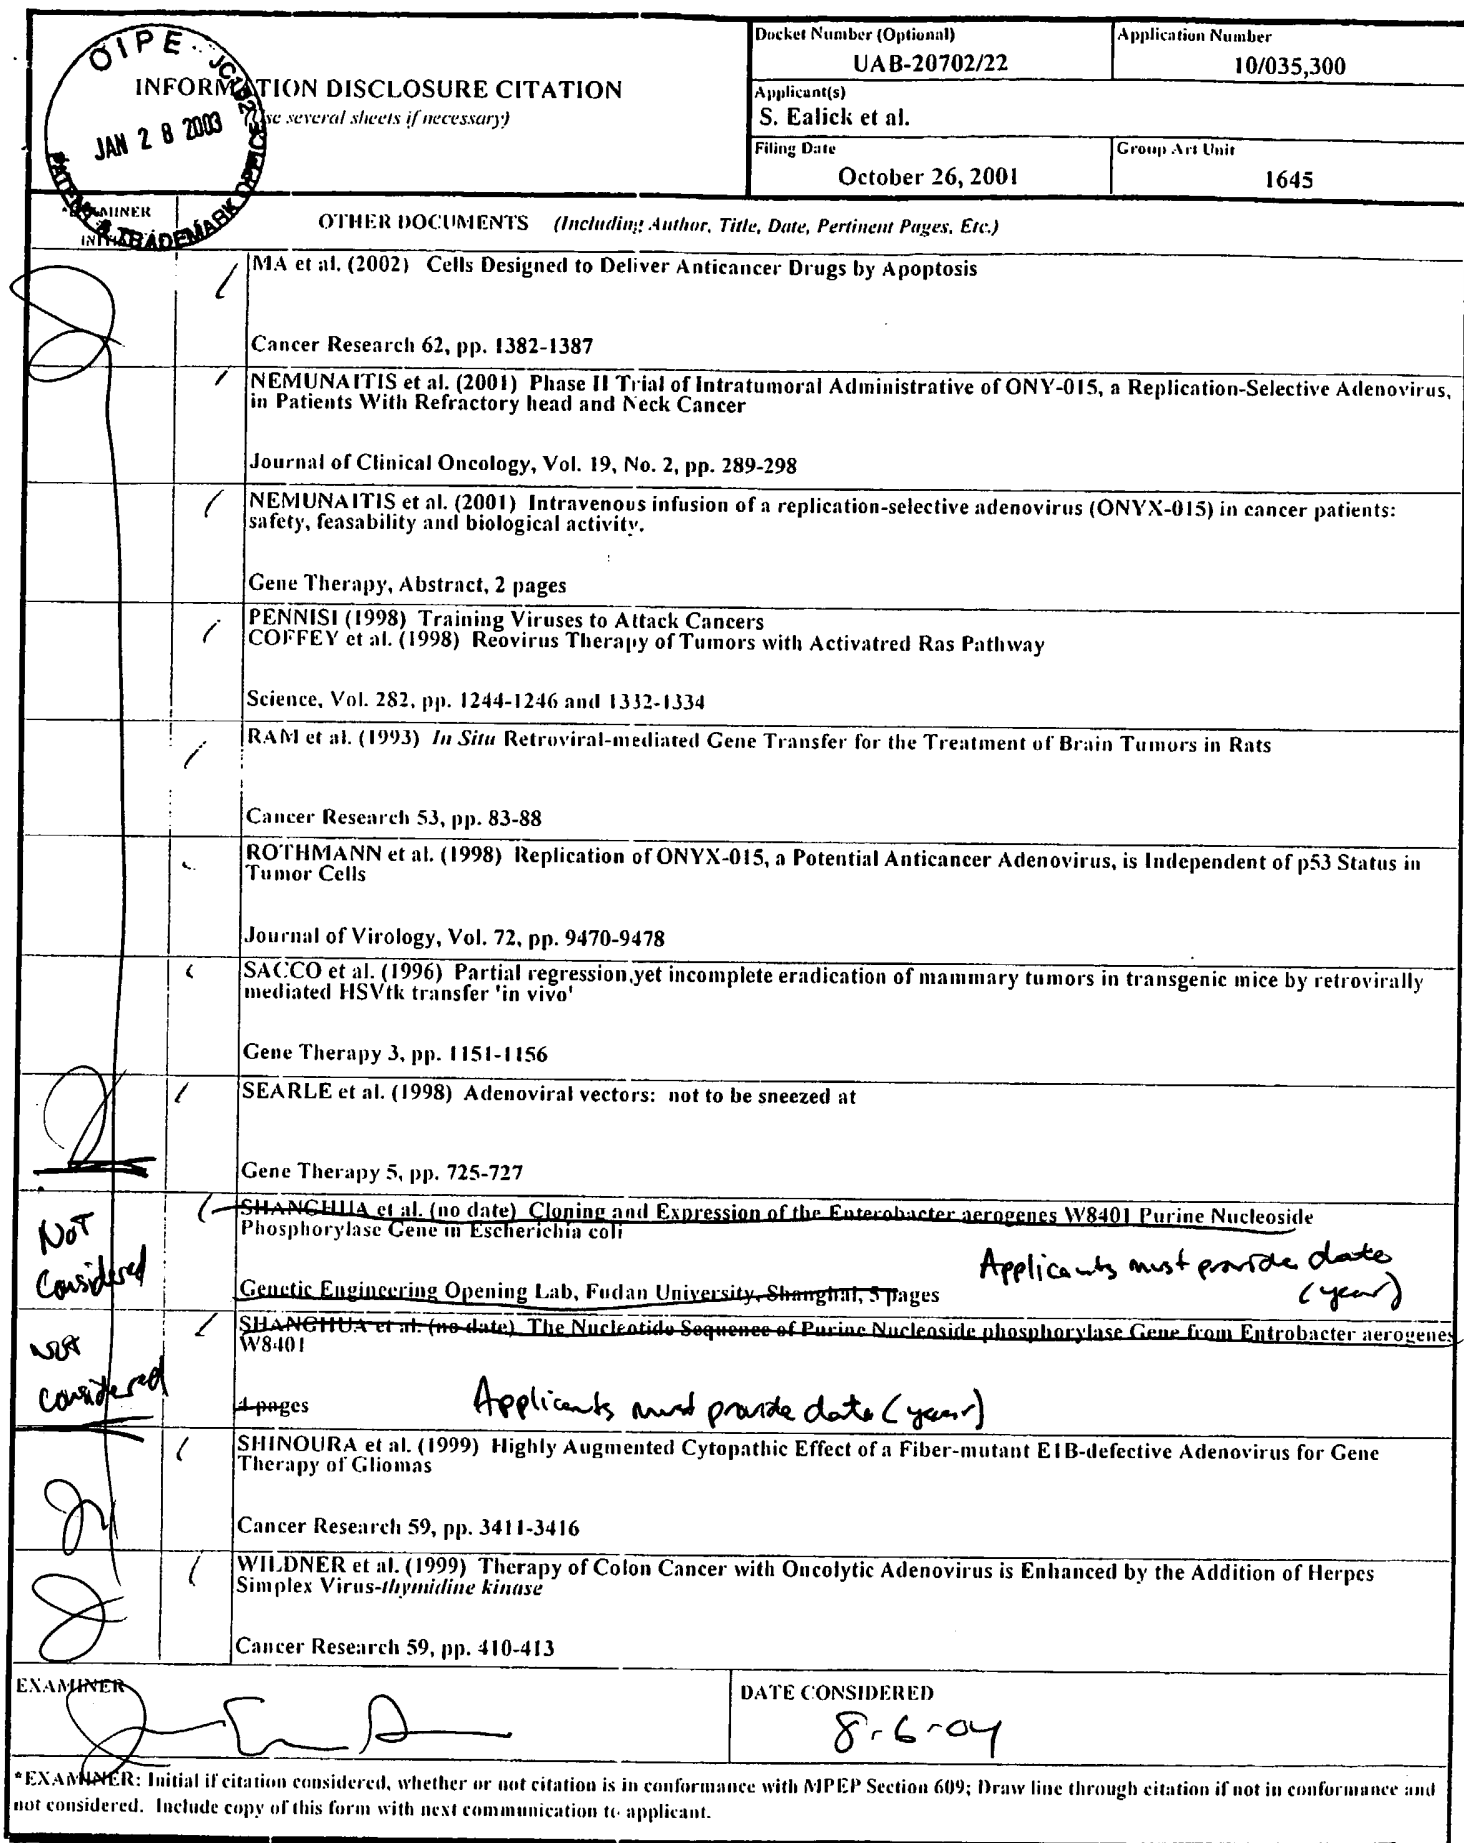 OIPE
JAN 28 2003
PATENT & TRADEMARK OFFICE
INFORMATION DISCLOSURE CITATION
(Use several sheets if necessary)
Docket Number (Optional)
UAB-20702/22
Application Number
10/035,300
Applicant(s)
S. Ealick et al.
Filing Date
October 26, 2001
Group Art Unit
1645
*EXAMINER
INITIAL
OTHER DOCUMENTS (Including Author, Title, Date, Pertinent Pages, Etc.)
MA et al. (2002) Cells Designed to Deliver Anticancer Drugs by Apoptosis
Cancer Research 62, pp. 1382-1387
NEMUNAITIS et al. (2001) Phase II Trial of Intratumoral Administrative of ONY-015, a Replication-Selective Adenovirus,
in Patients With Refractory head and Neck Cancer
Journal of Clinical Oncology, Vol. 19, No. 2, pp. 289-298
NEMUNAITIS et al. (2001) Intravenous infusion of a replication-selective adenovirus (ONYX-015) in cancer patients:
safety, feasability and biological activity.
Gene Therapy, Abstract, 2 pages
PENNISI (1998) Training Viruses to Attack Cancers
COFFEY et al. (1998) Reovirus Therapy of Tumors with Activatred Ras Pathway
Science, Vol. 282, pp. 1244-1246 and 1332-1334
RAM et al. (1993) In Situ Retroviral-mediated Gene Transfer for the Treatment of Brain Tumors in Rats
Cancer Research 53, pp. 83-88
ROTHMANN et al. (1998) Replication of ONYX-015, a Potential Anticancer Adenovirus, is Independent of p53 Status in
Tumor Cells
Journal of Virology, Vol. 72, pp. 9470-9478
SACCO et al. (1996) Partial regression,yet incomplete eradication of mammary tumors in transgenic mice by retrovirally
mediated HSVtk transfer 'in vivo'
Gene Therapy 3, pp. 1151-1156
SEARLE et al. (1998) Adenoviral vectors: not to be sneezed at
Gene Therapy 5, pp. 725-727
Not
Considered
SHANGHUA et al. (no date) Cloning and Expression of the Enterobacter aerogenes W8401 Purine Nucleoside
Phosphorylase Gene in Escherichia coli
Applicants must provide date
(year)
Genetic Engineering Opening Lab, Fudan University, Shanghai, 5 pages
Not
considered
SHANGHUA et al. (no date) The Nucleotide Sequence of Purine Nucleoside phosphorylase Gene from Entrobacter aerogenes
W8401
4 pages
Applicants must provide date (year)
SHINOURA et al. (1999) Highly Augmented Cytopathic Effect of a Fiber-mutant E1B-defective Adenovirus for Gene
Therapy of Gliomas
Cancer Research 59, pp. 3411-3416
WILDNER et al. (1999) Therapy of Colon Cancer with Oncolytic Adenovirus is Enhanced by the Addition of Herpes
Simplex Virus-thymidine kinase
Cancer Research 59, pp. 410-413
EXAMINER
DATE CONSIDERED
8-6-04
*EXAMINER: Initial if citation considered, whether or not citation is in conformance with MPEP Section 609; Draw line through citation if not in conformance and
not considered. Include copy of this form with next communication to applicant.